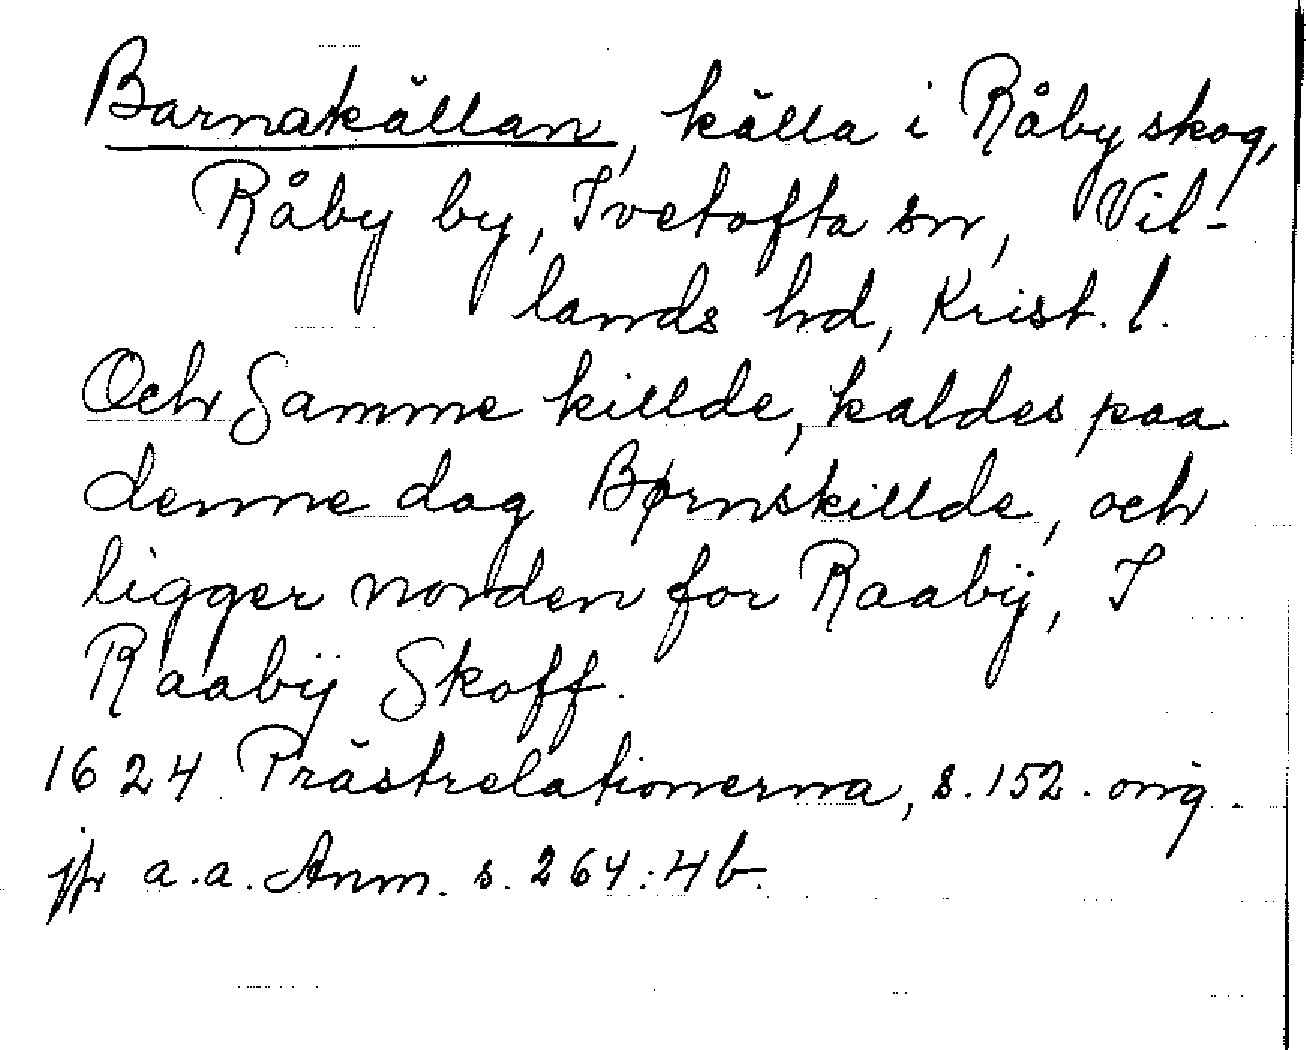 Barnakällan, källa i Råby skog,
Råby by, Ivetofta sn, Vil-
lands hd, Krist. l.
Och Samme killde, kaldes paa
denne dag Børnskillde, och
ligger norden for Raabÿ, I
Raabÿ Skoff.
1624 Prästrelationerna, s. 152. orig.
jfr a.a. Anm. s. 264:4b.